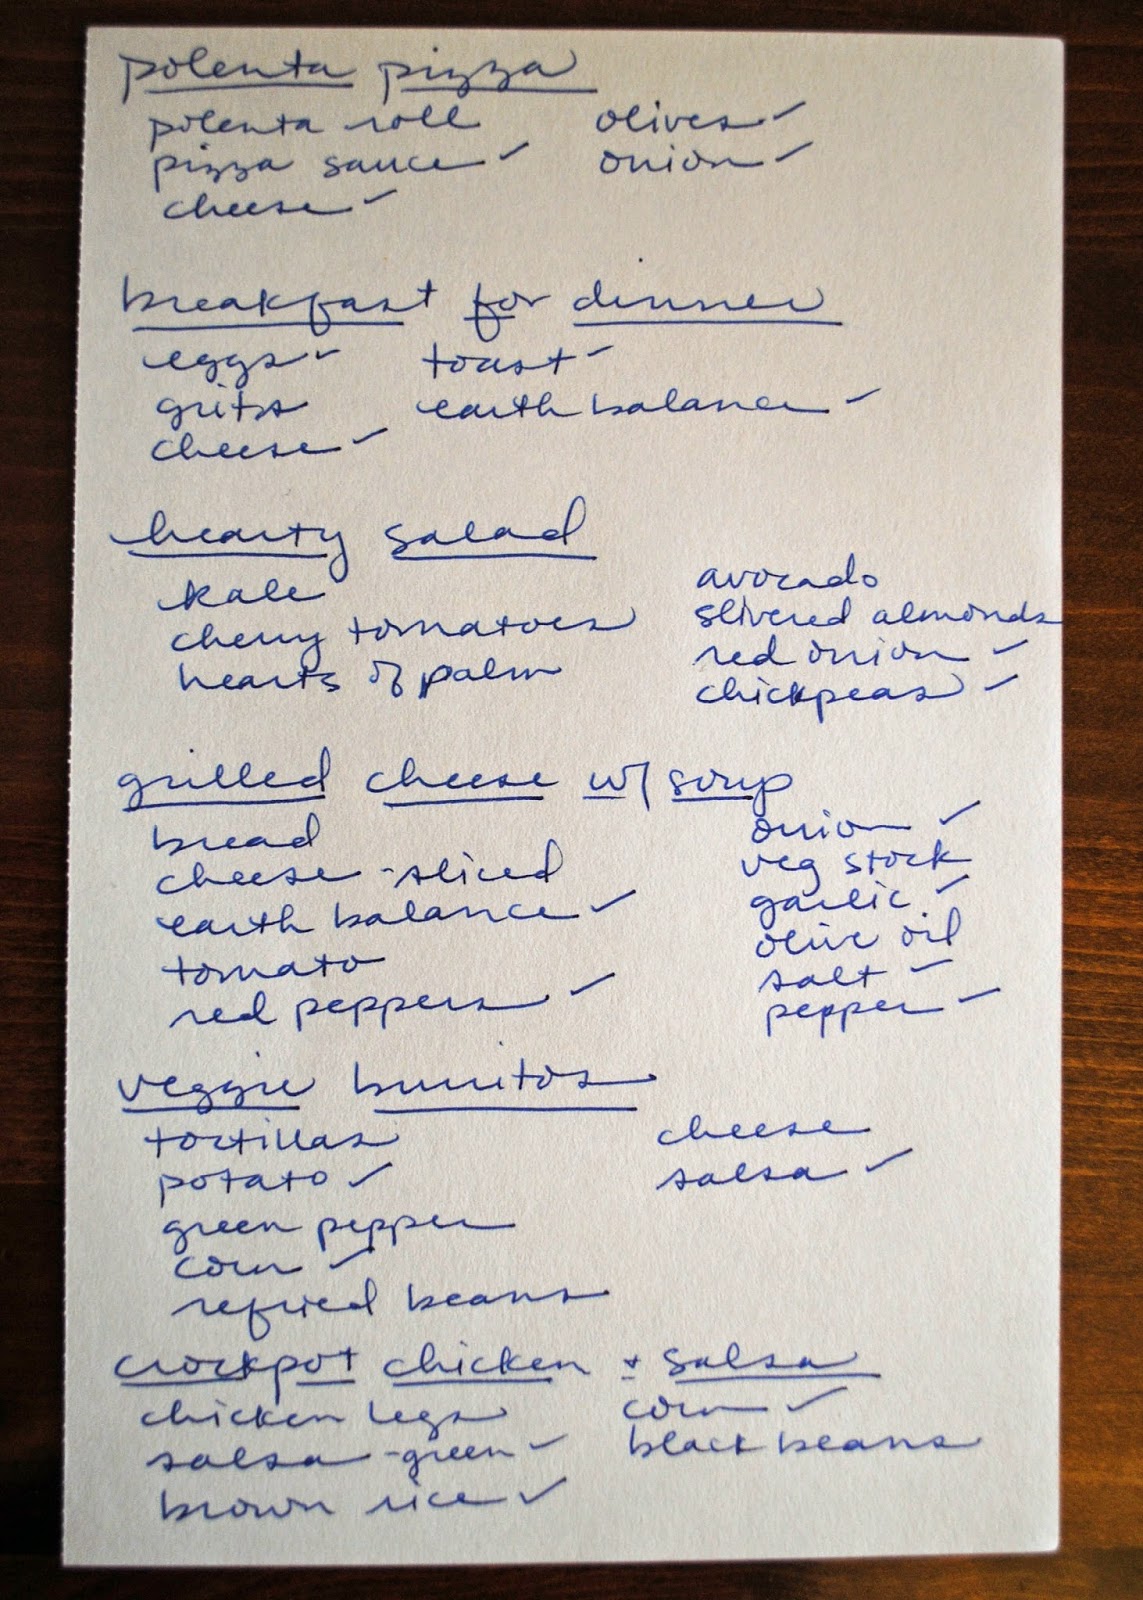 polenta pizza
polenta roll
pizza sauce ✓
cheese ✓
olives ✓
onion ✓
breakfast for dinner
eggs ✓
grits
cheese ✓
toast ✓
earth balance ✓
hearty salad
kale
cherry tomatoes
hearts of palm
avocado
slivered almonds
red onion ✓
chickpeas ✓
grilled cheese w/ soup
bread
cheese - sliced
earth balance ✓
tomato
red peppers ✓
onion ✓
veg stock
garlic ✓
olive oil
salt ✓
pepper ✓
veggie burritos
tortillas
potato ✓
green pepper
corn ✓
refried beans
cheese
salsa ✓
crockpot chicken + salsa
chicken legs
salsa - green ✓
brown rice ✓
corn ✓
black beans